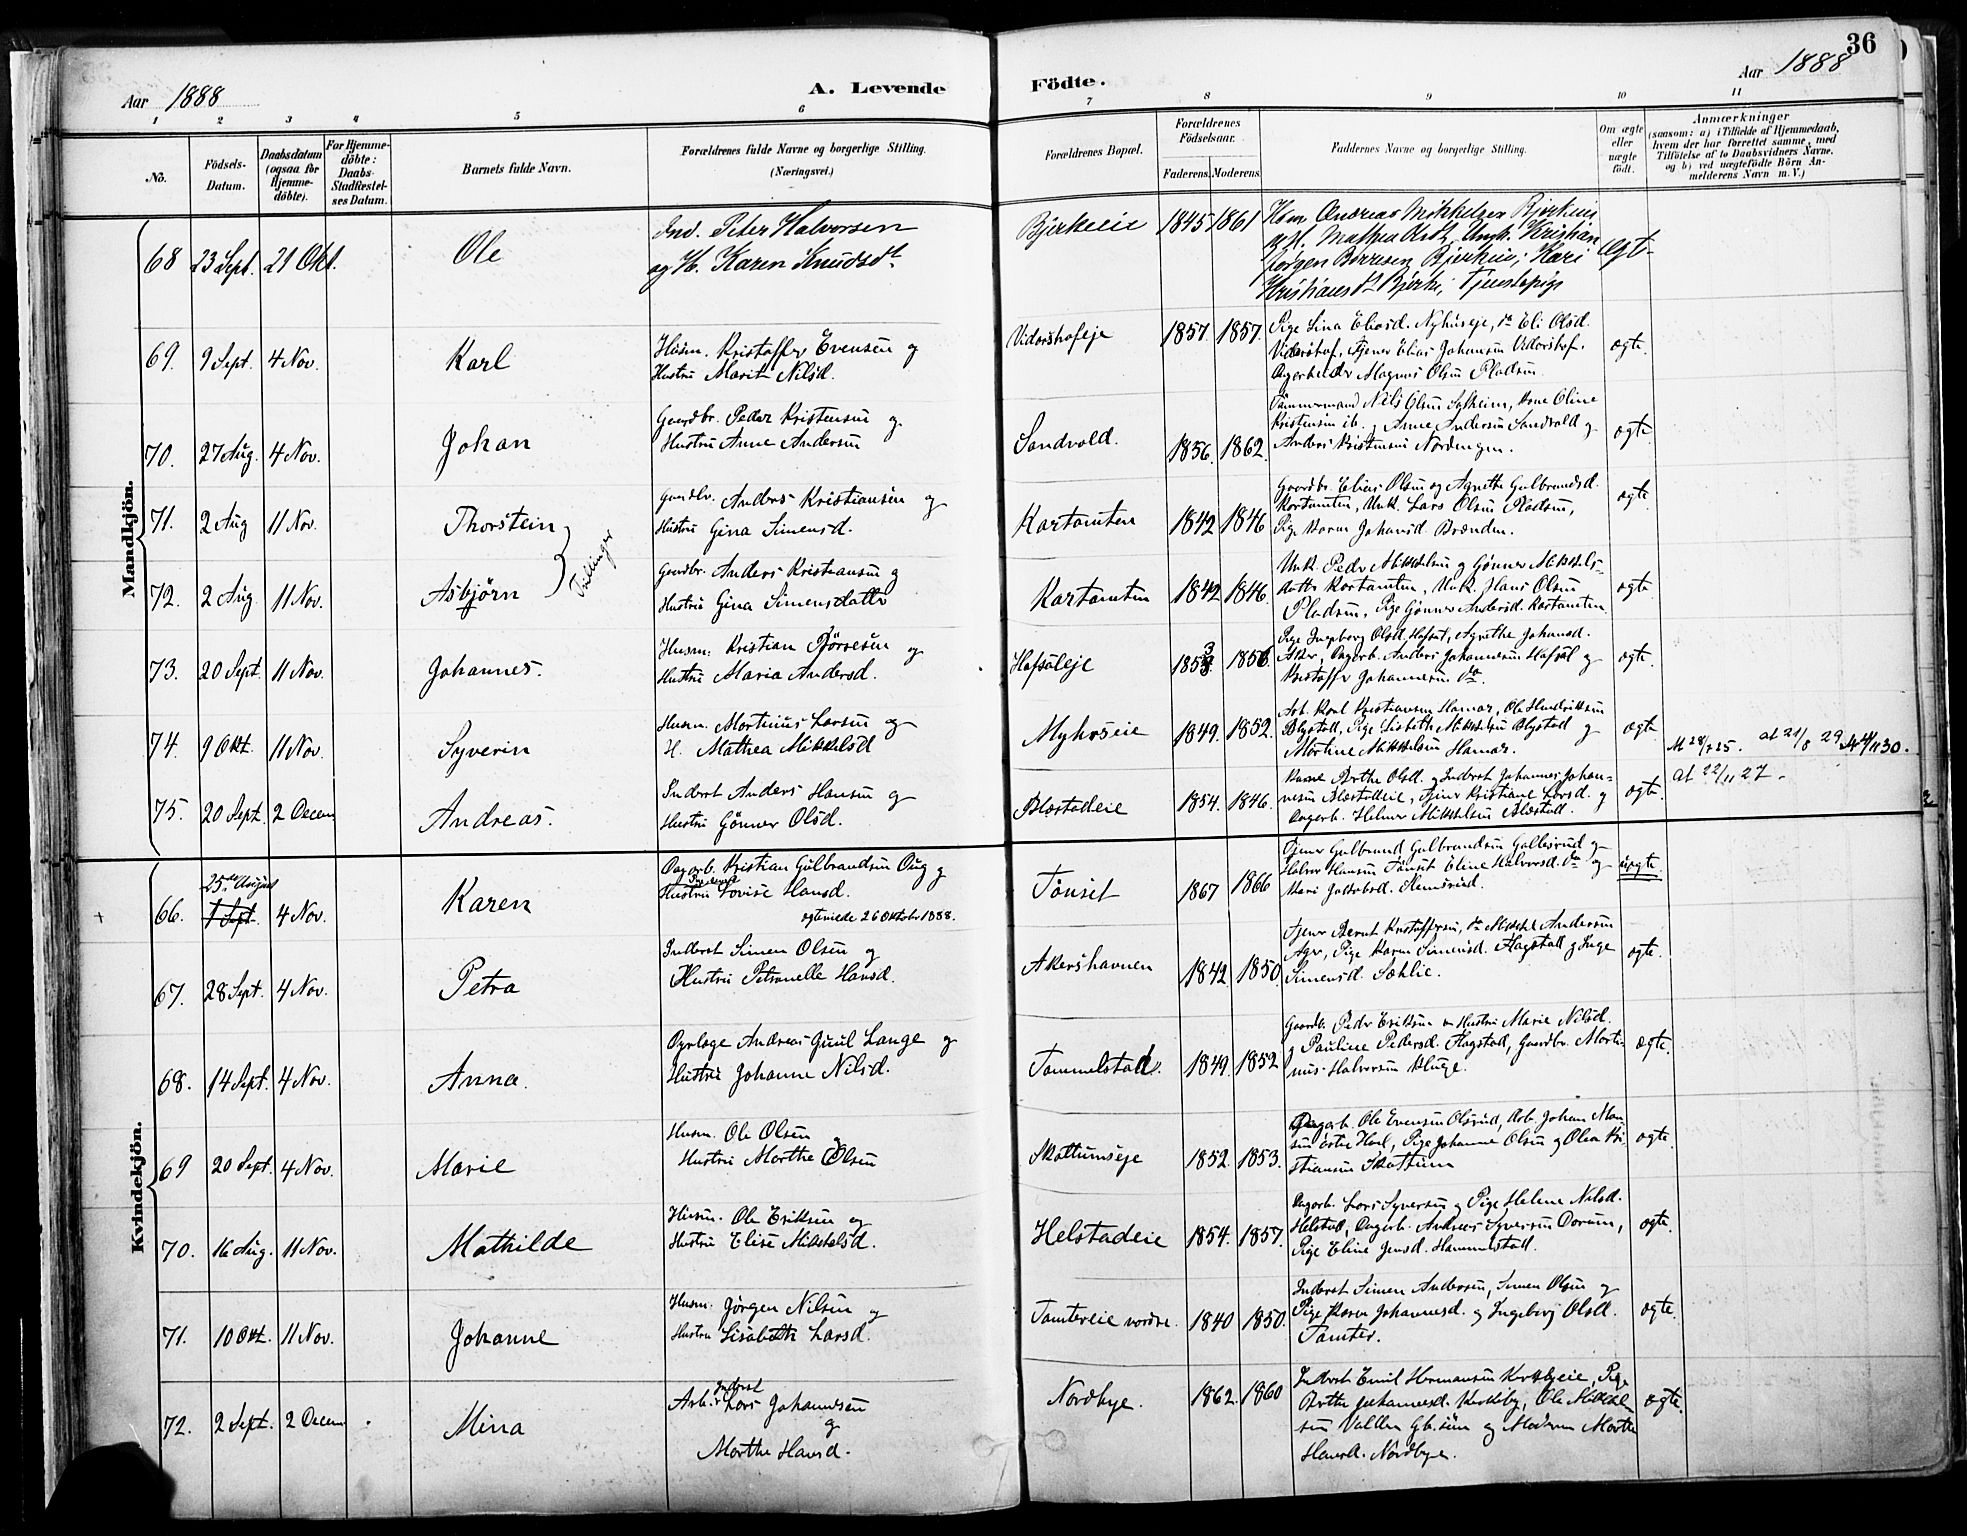 36
Aar 1888
A. Levende
Födte.
Aar 1888
1 2 3 4 5 6 7 8 9 10 11
No.
Födsels-
Datum.
Daabsdatum
(ogsaa for
Hjemme-
döbte).
For Hjemme-
döbte:
Daabs-
Stadfæstel-
ses Datum.
Barnets fulde Navn.
Forældrenes fulde Navne og borgerlige Stilling.
(Næringsvei.)
Forældrenes Bopæl.
Forældrenes
Födselsaar.
Faderens. Moderens.
Faddernes Navne og borgerlige Stilling.
Om ægte
eller
uægte
födt.
Anmærkninger
(saasom: a) i Tilfælde af Hjemmedaab,
hvem der har forrettet samme, med
Tilföielse af to Daabsvidners Navne.
og b) ved uægtefödte Börn An-
melderens Navn m. V.)
Mandkjön.
68 23 Sept. 21 Okt. Ole
Ind. Peter Halvorsen
og H. Karen Knudsdt.
Bjerkeeie 1845 1861
Andreas Mikkelsen Bjerkeeie
Mathea Ungk. Kristian
Jørgen Børresen Bjerkeeie; Kari
Kristiansdt Bjerke; Tjenestepige
ægte
69. 9 Sept. 4 Nov. Karl
Husm. Kristoffer Evensen og
Hustru Marit Nilsd.
Vidarshofeje 1857. 1857.
Pige Lina Eliasd. Nyhuseje, do Eli Olsd.
Vidarshof, Tjener Elias Johansen Vidarshof.
Magnus Olsen Pladsen.
ægte.
70. 27 Aug. 4 Nov. Johan
Gaardbr. Peder Kristensen og
Hustru Anne Andersen
Sandvold. 1856. 1862.
Tømmermand Nils Olsen Solheim, Kone Oline
Kristensen ib., Anne Andersen Sandvold og
Anders Kristensen Nordengen.
ægte.
71. 2 Aug 11 Nov. Thorstein
Gaardbr. Anders Kristiansen og
Hustru Gina Simensd.
Kartomten 1842 1846
Gaardbr. Elias Olsen og Agnethe Gulbrandsd.
Kartomten, Unk. Lars Olsen Pladsen,
Pige Karen Johansd. Brænden.
ægte.
Tvillinger
72. 2 Aug. 11 Nov. Asbjørn
Gaardbr. Anders Kristiansen og
Hustru Gina Simensdatter
Kartomten 1842 1846.
Unk. Peder Mikkelsen og Gønner Mikkels-
datter Kartomten, Unk. Hans Olsen
Pladsen, Pige Gønner Andersd. Kartomten.
ægte.
73. 20 Sept. 11 Nov. Johannes.
Husm. Kristian Børresen og
Hustru Maria Andersd.
Hofsaleje 1853 1856.
Pige Ingeborg Olsd. Hofsal, Agnethe Johansd.
Aker, Dagarb. Anders Johannesen Hofsal og
Kristoffer Johannesen do.
ægte.
74. 9 Okt. 11 Nov. Syverin
Husm. Martinus Larsen og
H. Mathea Mikkelsd
Myhrseie 1849. 1852.
Arb. Karl Kristiansen Hamar, Ole Hendriksen
Blystad, Pige Lisbeth Mikkelsen Blystad og
Martine Mikkelsen Hamar.
ægte.
75. 20 Sept. 2 Decem Andreas.
Inderst Anders Hansen og
Hustru Gønner Olsd.
Blæstadeie 1854. 1846.
Kone Berthe Olsd. og Inderst Johannes Johan-
nesen Blæstadeie, Tjener Kristiane Larsd. og
Dagarb. Helmer Mikkelsen Blæstad.
ægte.
at 22/11 27.
Kvindekjön.
66. 25de August
1 Sept. 4 Nov. Karen
Dagarb. Kristian Gulbrandsen og
Hustru Lovise Hansd.
ægteviede 26 Oktober 1888.
Tønset 1867 1866
Tjener Gulbrand Gulbrandsen og
Halvor Hansen Tønset, Eline Halvorsd. do og
Mari Jakobsd.
uægte.
67. 28 Sept. 4 Nov. Petra
Inderst Simen Olsen og
Hustru Petronelle Hansd.
Akershavnen 1842. 1850.
Tjener Bernt Kristoffersen, do Mikkel Andersen
Ager, Pige Karen Simensd. Flagstad og Inge
Simensd. Sæhlie.
ægte.
68. 14 Sept. 4 Nov. Anna.
Dyrlæge Andreas Juul Lange og
Hustru Johanne Nilsd.
Tommelstad. 1849. 1852
Gaardb. Peder Eriksen og Hustru Marie Nilsd.
og Pauline Pedersd. Flagstad, Gaardbr. Marti-
nus Halvorsen Kluge.
ægte.
69 20 Sept. 4 Nov. Marie
Husm. Ole Olsen og
Hustru Marthe Olsen
Skattumseje 1852. 1853.
Dagarb. Ole Evensen Olsrud, Arb. Johan Man-
sen østre Hoel, Pige Johanne Olsen og Olea Kri-
stiansen Skattum
ægte.
70. 16 Aug. 11 Nov. Mathilde
Husm. Ole Eriksen og
Hustru Elise Mikkelsd.
Helstadeie 1854. 1857.
Dagarb. Lars Syversen og Pige Helene Nilsd.
Helstad, Dagarb. Andreas Syversen Dørum,
Pige Eline Jensd. Hammerstad.
ægte.
71. 10 Okt. 11 Nov. Johanne
Husm. Jørgen Nilsen og
Hustru Lisabeth Larsd.
Tomtereie nordre. 1840 1850.
Inderst Simen Andersen, Simen Olsen og
Pige Karen Johannesd. og Ingeborg Olsd.
Tomter.
ægte.
72. 2 Sept. 2 Decem Mina
Arb. Inderst Lars Johannesen
og
Marthe Hansd.
Nordbye. 1862. 1860
Inderst Emil Hermansen Kirkebyeie, Pige
Berthe Johannesd. Kirkeby, Ole Mikkel-
sen Vold en Gb. søn og Moderen Marthe
Hansd. Nordbye.
ægte.